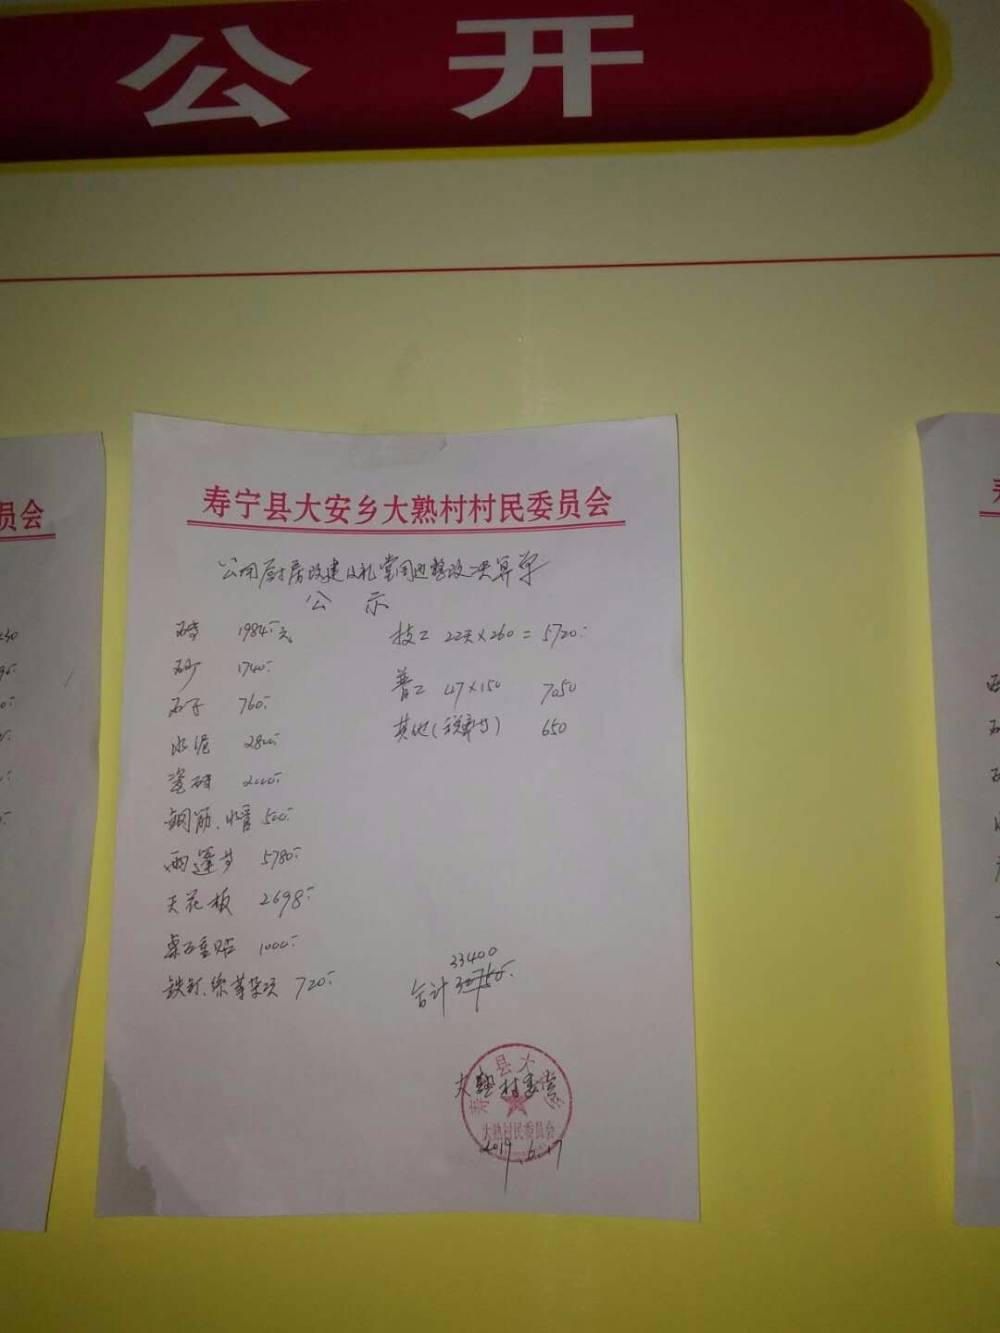 公 开
寿宁县大安乡大熟村村民委员会
公用厨房改建及礼堂周边整改决算单
公 示
砖 1984元
砂 1740
石子 760
水泥 2800
瓷砖 2000
钢筋、水管 500
雨篷等 5780
天花板 2698
桌 1000
铁钉、线等杂项 720
技工 22天×260=5720
普工 47×150 7050
其他(税率等) 650
33400
合计
大熟村委会
寿 县大
大熟村民委员会
2019.6.17
员会